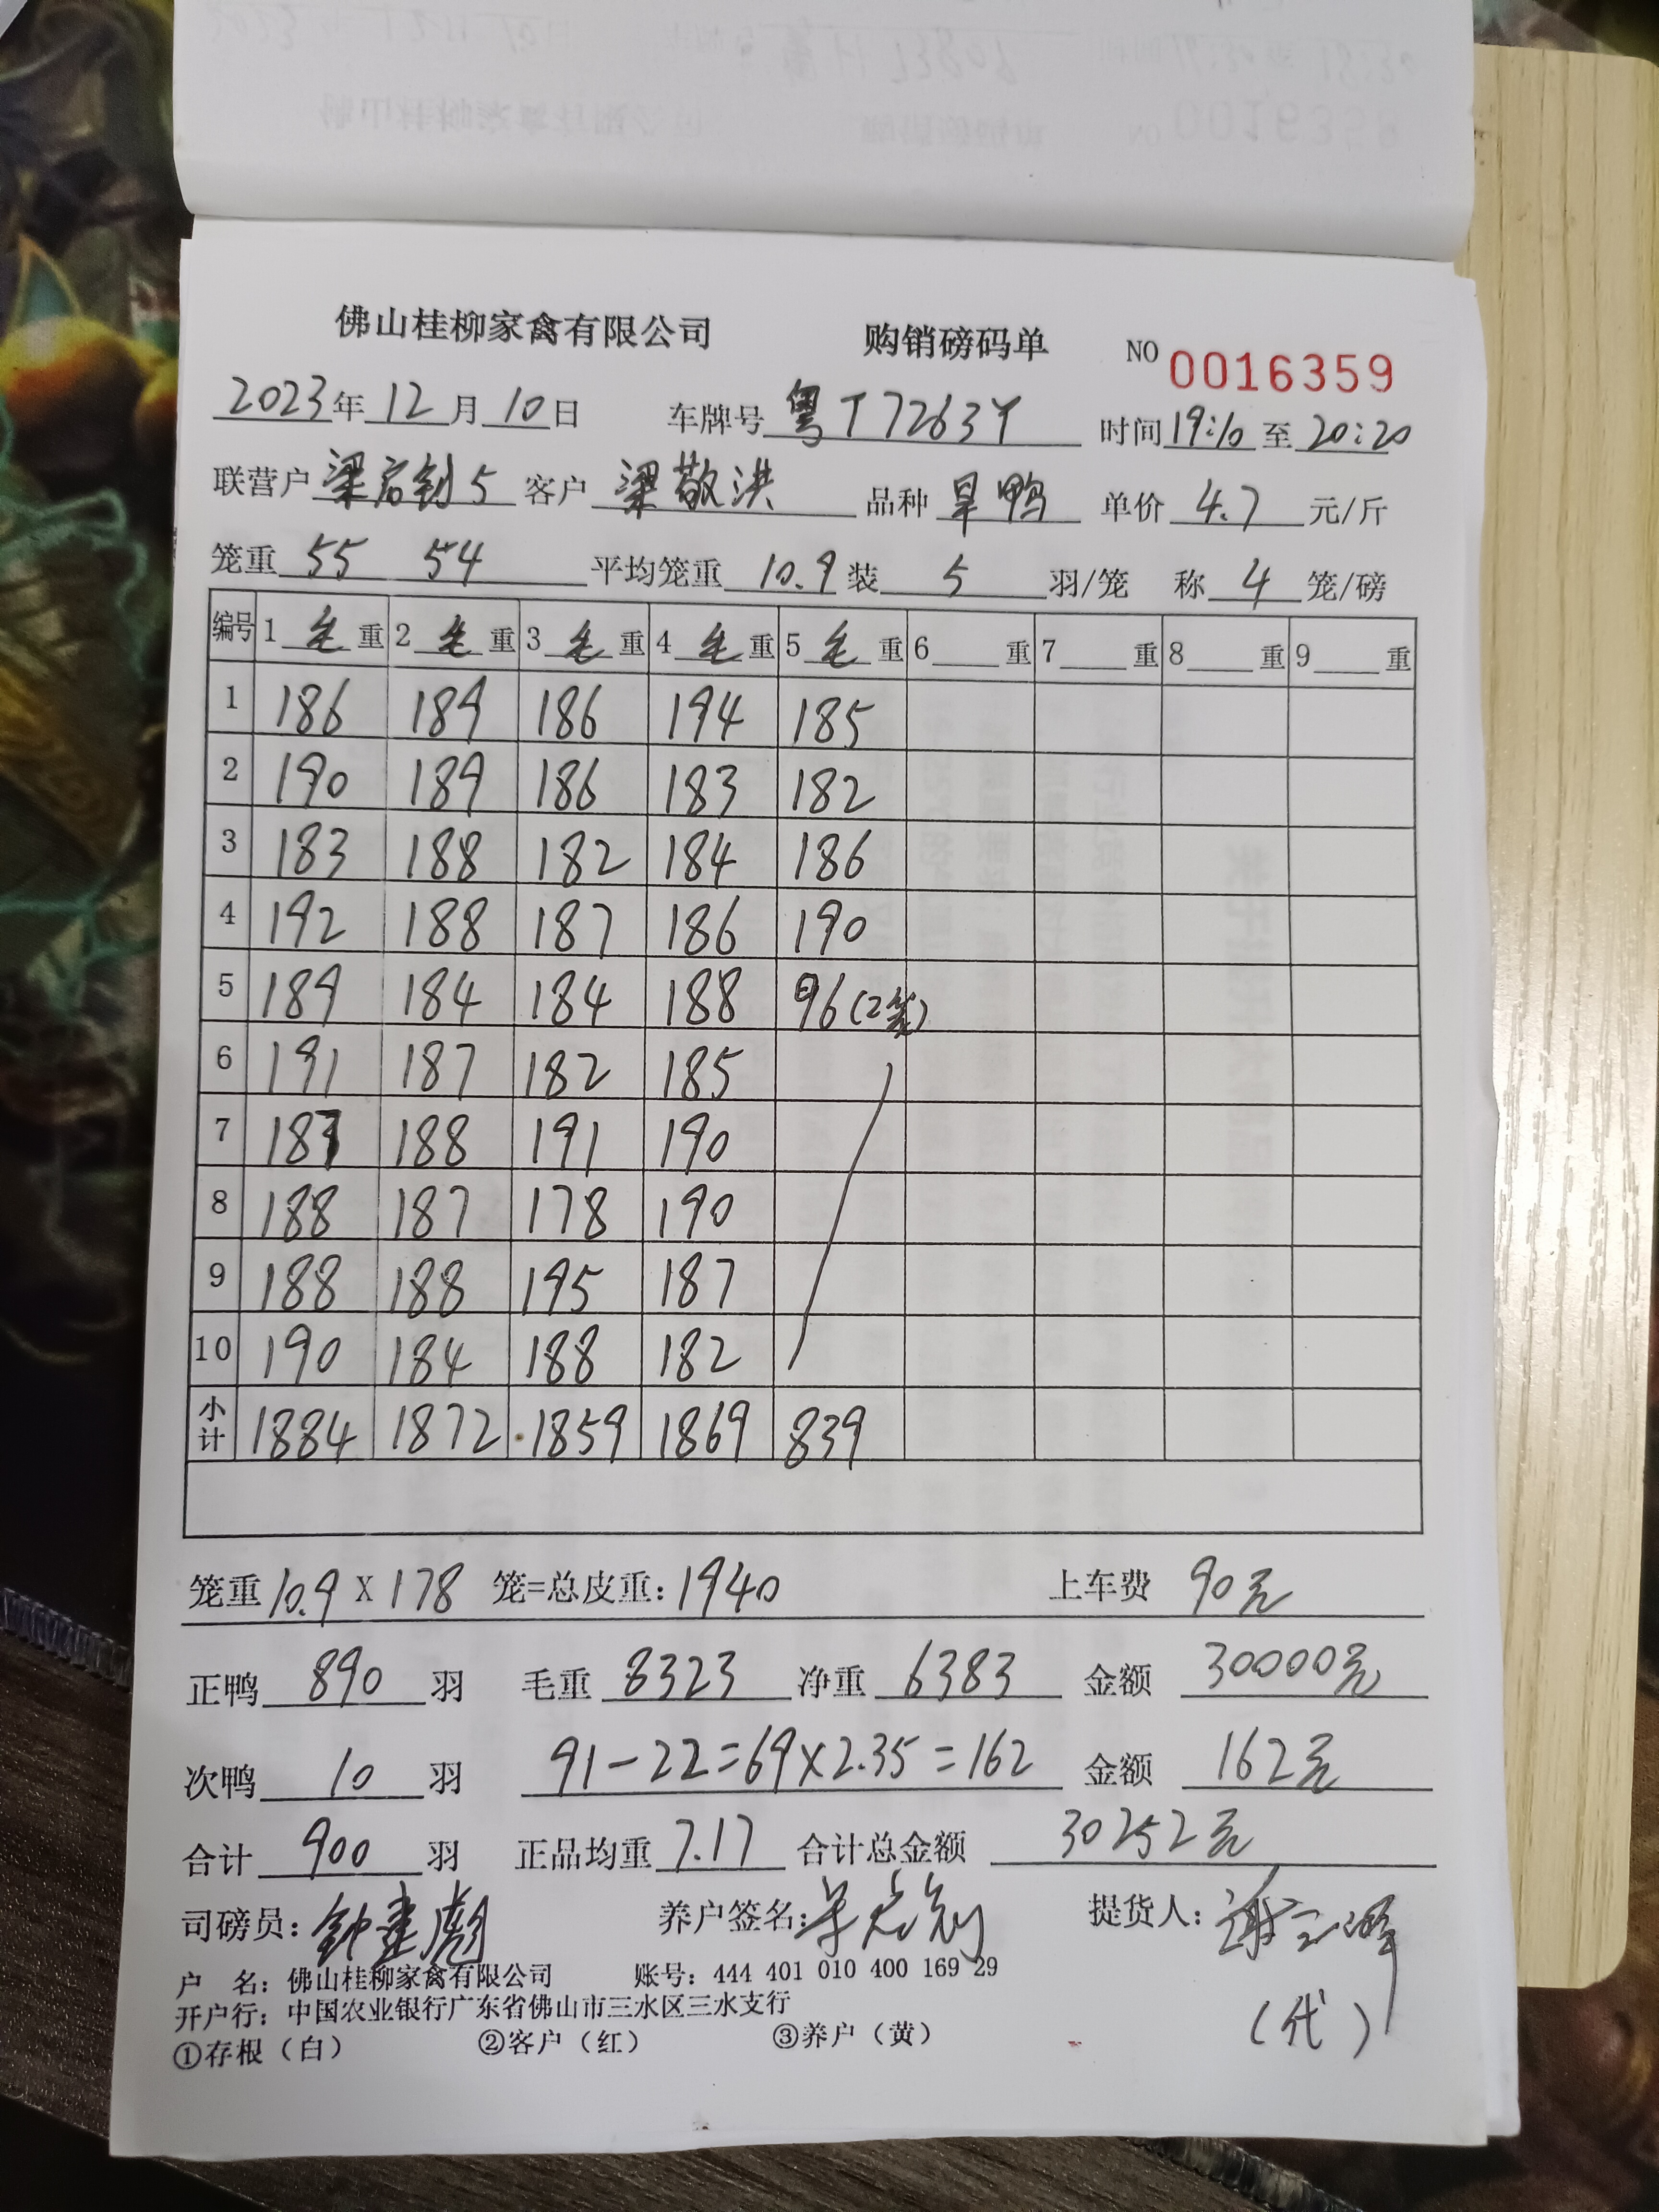 佛山桂柳家禽有限公司 购销磅码单 NO 0016359
2023年12月10日 车牌号 粤T7263Y 时间19:10至20:20
联营户 梁启钊5 客户 梁敬洪 品种 旱鸭 单价 4.7 元/斤
笼重 55 54 平均笼重 10.9 装 5 羽/笼 称 4 笼/磅
编号 1 毛 重 2 毛 重 3 毛 重 4 毛 重 5 毛 重 6 重 7 重 8 重 9 重
1 186 189 186 194 185
2 190 189 186 183 182
3 183 188 182 184 186
4 192 188 187 186 190
5 189 184 184 188 96(2笼)
6 191 187 182 185
7 187 188 191 190
8 188 187 178 190
9 188 188 195 187
10 190 184 188 182
小计 1884 1872 1859 1869 839
笼重10.9 X 178 笼=总皮重:1940 上车费 90元
正鸭 890 羽 毛重 8323 净重 6383 金额 30000元
次鸭 10 羽 91-22=69×2.35=162 金额 162元
合计 900 羽 正品均重 7.17 合计总金额 30252元
司磅员: 钟建彪 养户签名: 提货人:
户 名: 佛山桂柳家禽有限公司 账号: 444 401 010 400 169 29
开户行: 中国农业银行广东省佛山市三水区三水支行
①存根(白) ②客户(红) ③养户(黄) (代)